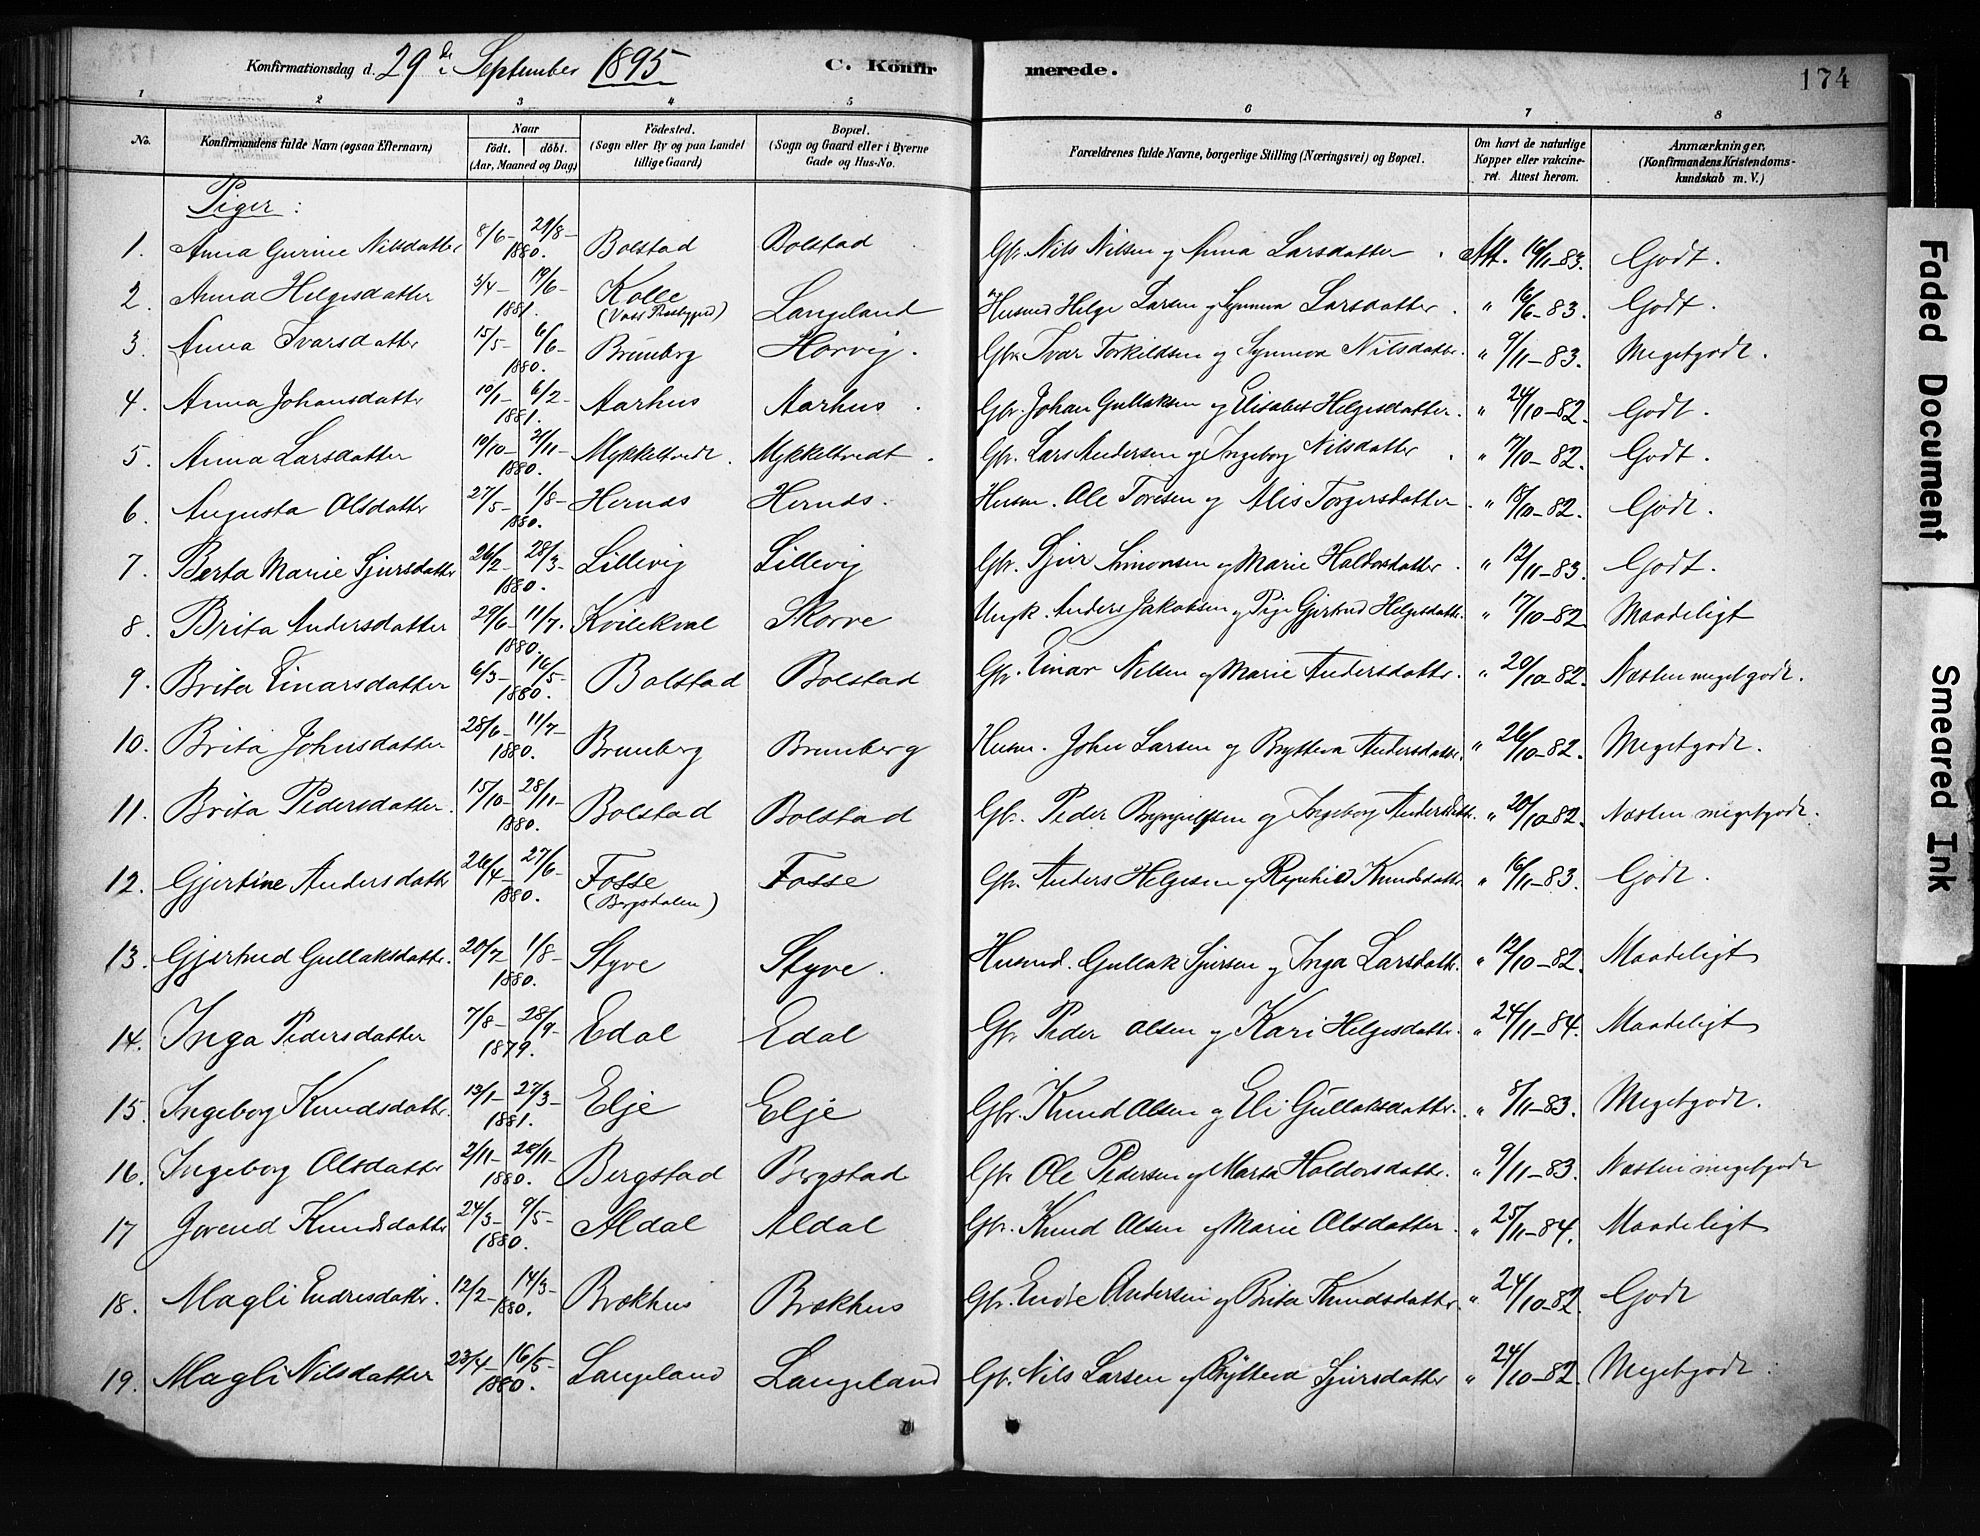 Konfirmationsdag d. 29de September 1895
C. Konfirmerede.
174
1 2 3 4 5 6 7 8
No.
Konfirmandens fulde Navn (ogsaa Efternavn)
Naar
födt. döbt.
(Aar, Maaned og Dag)
Födested.
(Sogn eller By og paa Landet
tillige Gaard)
Bopæl.
(Sogn og Gaard eller i Byerne
Gade og Hus-No.
Forældrenes fulde Navne, borgerlige Stilling (Næringsvei) og Bopæl.
Om havt de naturlige
Kopper eller vakcine-
ret. Attest herom.
Anmærkninger.
(Konfirmandens Kristendoms-
kundskab m. V.)
Piger:
1. Anna Gurine Nilsdatter 8/6- 29/8- 1880. Bolstad Bolstad Gbr. Nils Nilsen og Anna Larsdatter. Att. 16/11-83. Godt.
2. Anna Helgesdatter 3/4- 19/6- 1881. Kolle Langeland Husmd Helge Larsen og Synneva Larsdatter. " 16/6-83. Godt.
3. Anna Ivarsdatter 15/5- 6/6- 1880. Brunberg Horvig. Gbr. Ivar Torkildsen og Synneva Nilsdatter. " 9/11-83. Megetgodt.
4. Anna Johansdatter 10/1- 6/2- 1881. Aarhus Aarhus. Gbr. Johan Gullaksen og Elisabet Helgesdatter. " 24/10-82. Godt.
5. Anna Larsdatter 10/10- 21/11- 1880. Mykkeltvedt. Mykkeltvedt. Gbr. Lars Andersen og Ingeborg Nilsdatter. " 7/10-82. Godt.
6. Augusta Olsdatter 27/5- 1/8- 1880. Hernds Hernds. Husm. Ole Toresen og Alis Torgersdatter. " 18/10-82. Godt.
7. Berta Marie Sjursdatter 26/2- 28/3- 1880. Lillevig Lillevig Gbr. Sjur Simonsen og Marie Haldorsdatter. " 12/11-83. Godt.
8. Brita Andersdatter 29/6- 11/7. 1880. Kvilekval Skorve Ungk. Anders Jakobsen og Pige Gjertrud Helgesdatter. " 17/10-82 Maadeligt
9. Brita Einarsdatter 6/3- 16/5- 1880. Bolstad Bolstad Gbr. Einar Nilsen og Marie Andersdatter. " 20/10-82. Næsten megetgodt.
10. Brita Johnsdatter 28/6- 11/7- 1880. Brunberg Brunberg Husm. John Larsen og Brytteva Andersdatter. " 26/10-82. Megetgodt.
11. Brita Pedersdatter. 15/10- 28/11- 1880. Bolstad Bolstad Gbr. Peder Brynjulfsen og Ingeborg Andersdatter. " 20/10-82. Næsten megetgodt.
12. Gjertine Andersdatter 26/4- 27/6- 1880. Fosse (Bergsdalen) Fosse Gbr. Anders Helgesen og Rognhild Knudsdatter. " 16/11-83. Godt.
13. Gjertrud Gullaksdatter. 20/7- 1/8- 1880. Styve Styve. Husmd. Gullak Sjursen og Inga Larsdatter. " 12/10-82. Maadeligt
14. Inga Pedersdatter 7/8- 28/9- 1879. Edal Edal Gbr. Peder Olsen og Kari Helgesdatter. " 24/11-84. Maadeligt
15. Ingeborg Knudsdatter. 13/1- 27/3- 1881. Elje Elje Gbr. Knud Olsen og Eli Gullaksdatter. " 8/11-83. Megetgodt.
16. Ingeborg Olsdatter 2/11- 28/11- 1880. Bergstad Bergstad Gbr. Ole Pedersen og Marta Haldorsdatter. " 9/11-83. Næsten megetgodt
17 Jorend Knudsdatter 24/3- 9/5- 1880. Aldal Aldal Gbr. Knud Olsen og Marie Olsdatter. " 25/11-84. Maadeligt
18. Magli Endresdatter. 12/2- 14/3- 1880. Brækhus Brækhus Gbr. Endre Andersen og Brita Knudsdatter " 24/10-82. Godt
19. Magli Nilsdatter 23/4- 16/5- 1880. Langeland Langeland Gbr. Nils Larsen og Brytteva Sjursdatter " 24/10-82. Megetgodt.
Faded Document
Smeared Ink